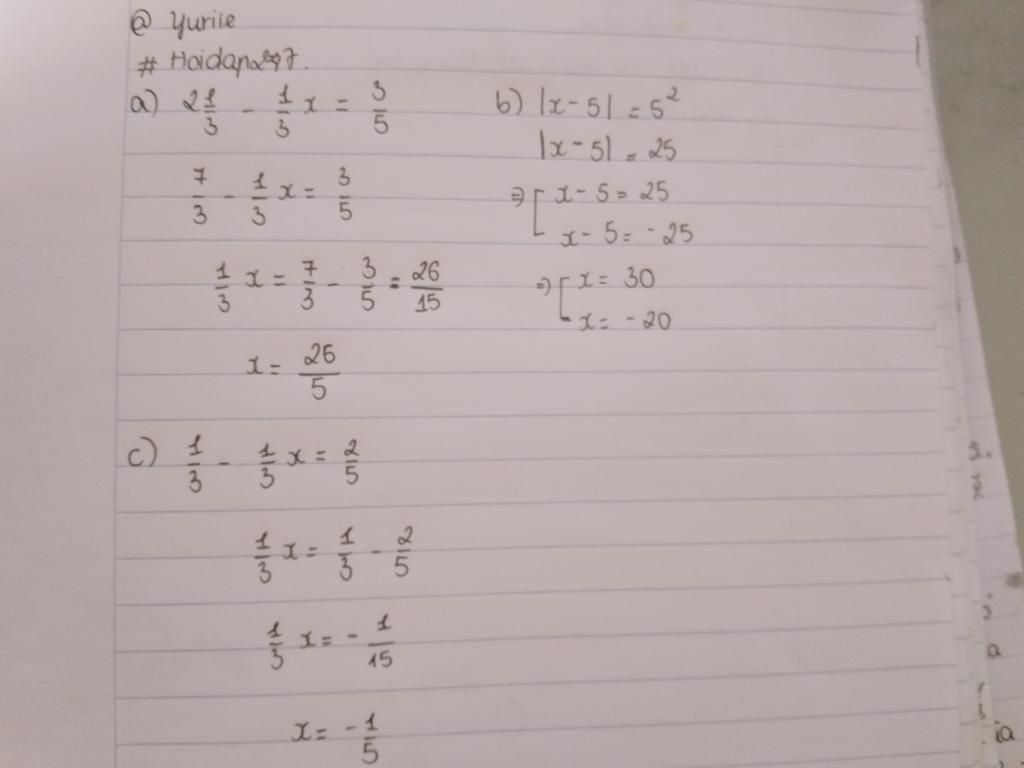 @ Yuriie
# Hoidap247.
a) 2 1/3 - 1/3 x = 3/5
7/3 - 1/3 x = 3/5
1/3 x = 7/3 - 3/5 = 26/15
x = 26/5
b) |x - 5| = 5²
|x - 5| = 25
=> [ x - 5 = 25
x - 5 = -25
=> [ x = 30
x = -20
c) 1/3 - 1/3 x = 2/5
1/3 x = 1/3 - 2/5
1/3 x = - 1/15
x = - 1/5